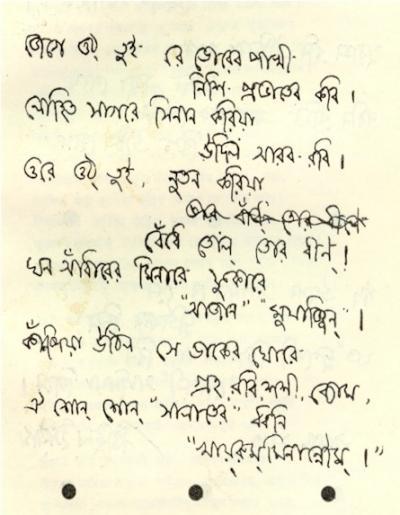 জেগে ওঠ্ তুই রে ভোরের পাখী
নিশি-প্রভাতের কবি!
লোহিত সাগরে সিনান করিয়া
উদিল আরব-রবি।
ওরে ওঠ্ তুই, নূতন করিয়া
বেঁধে তোল্ তোর বীণ্!
ঘন আঁধারের মিনারে ফুকারে
"আজান" "মুয়াজ্জিন"।
কাঁপিয়া উঠিল সে ডাকের ঘোরে
গ্রহ, রবি শশী, ব্যোম,
ঐ শোন্ শোন্ "সালাতের" ধ্বনি
"খায়রুম্মিনান্নৌম্।"